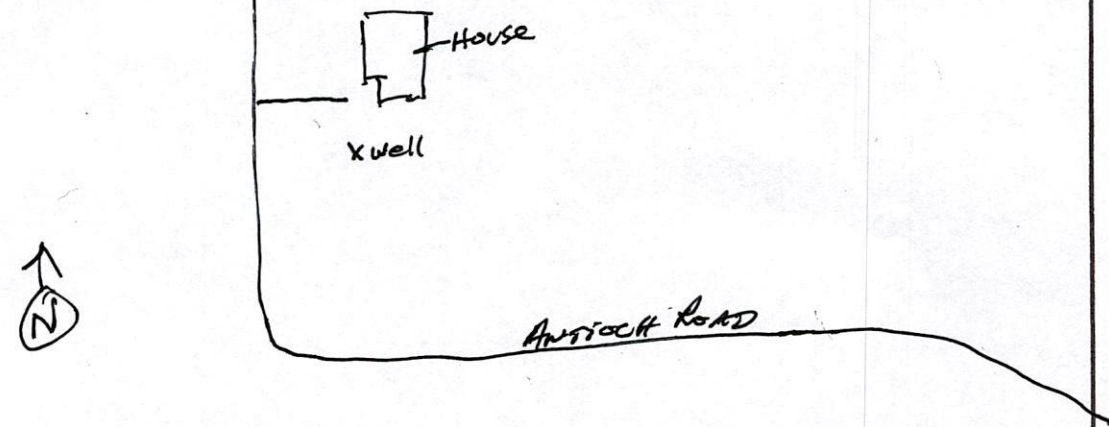 House
x well
N
ANTIOCH ROAD